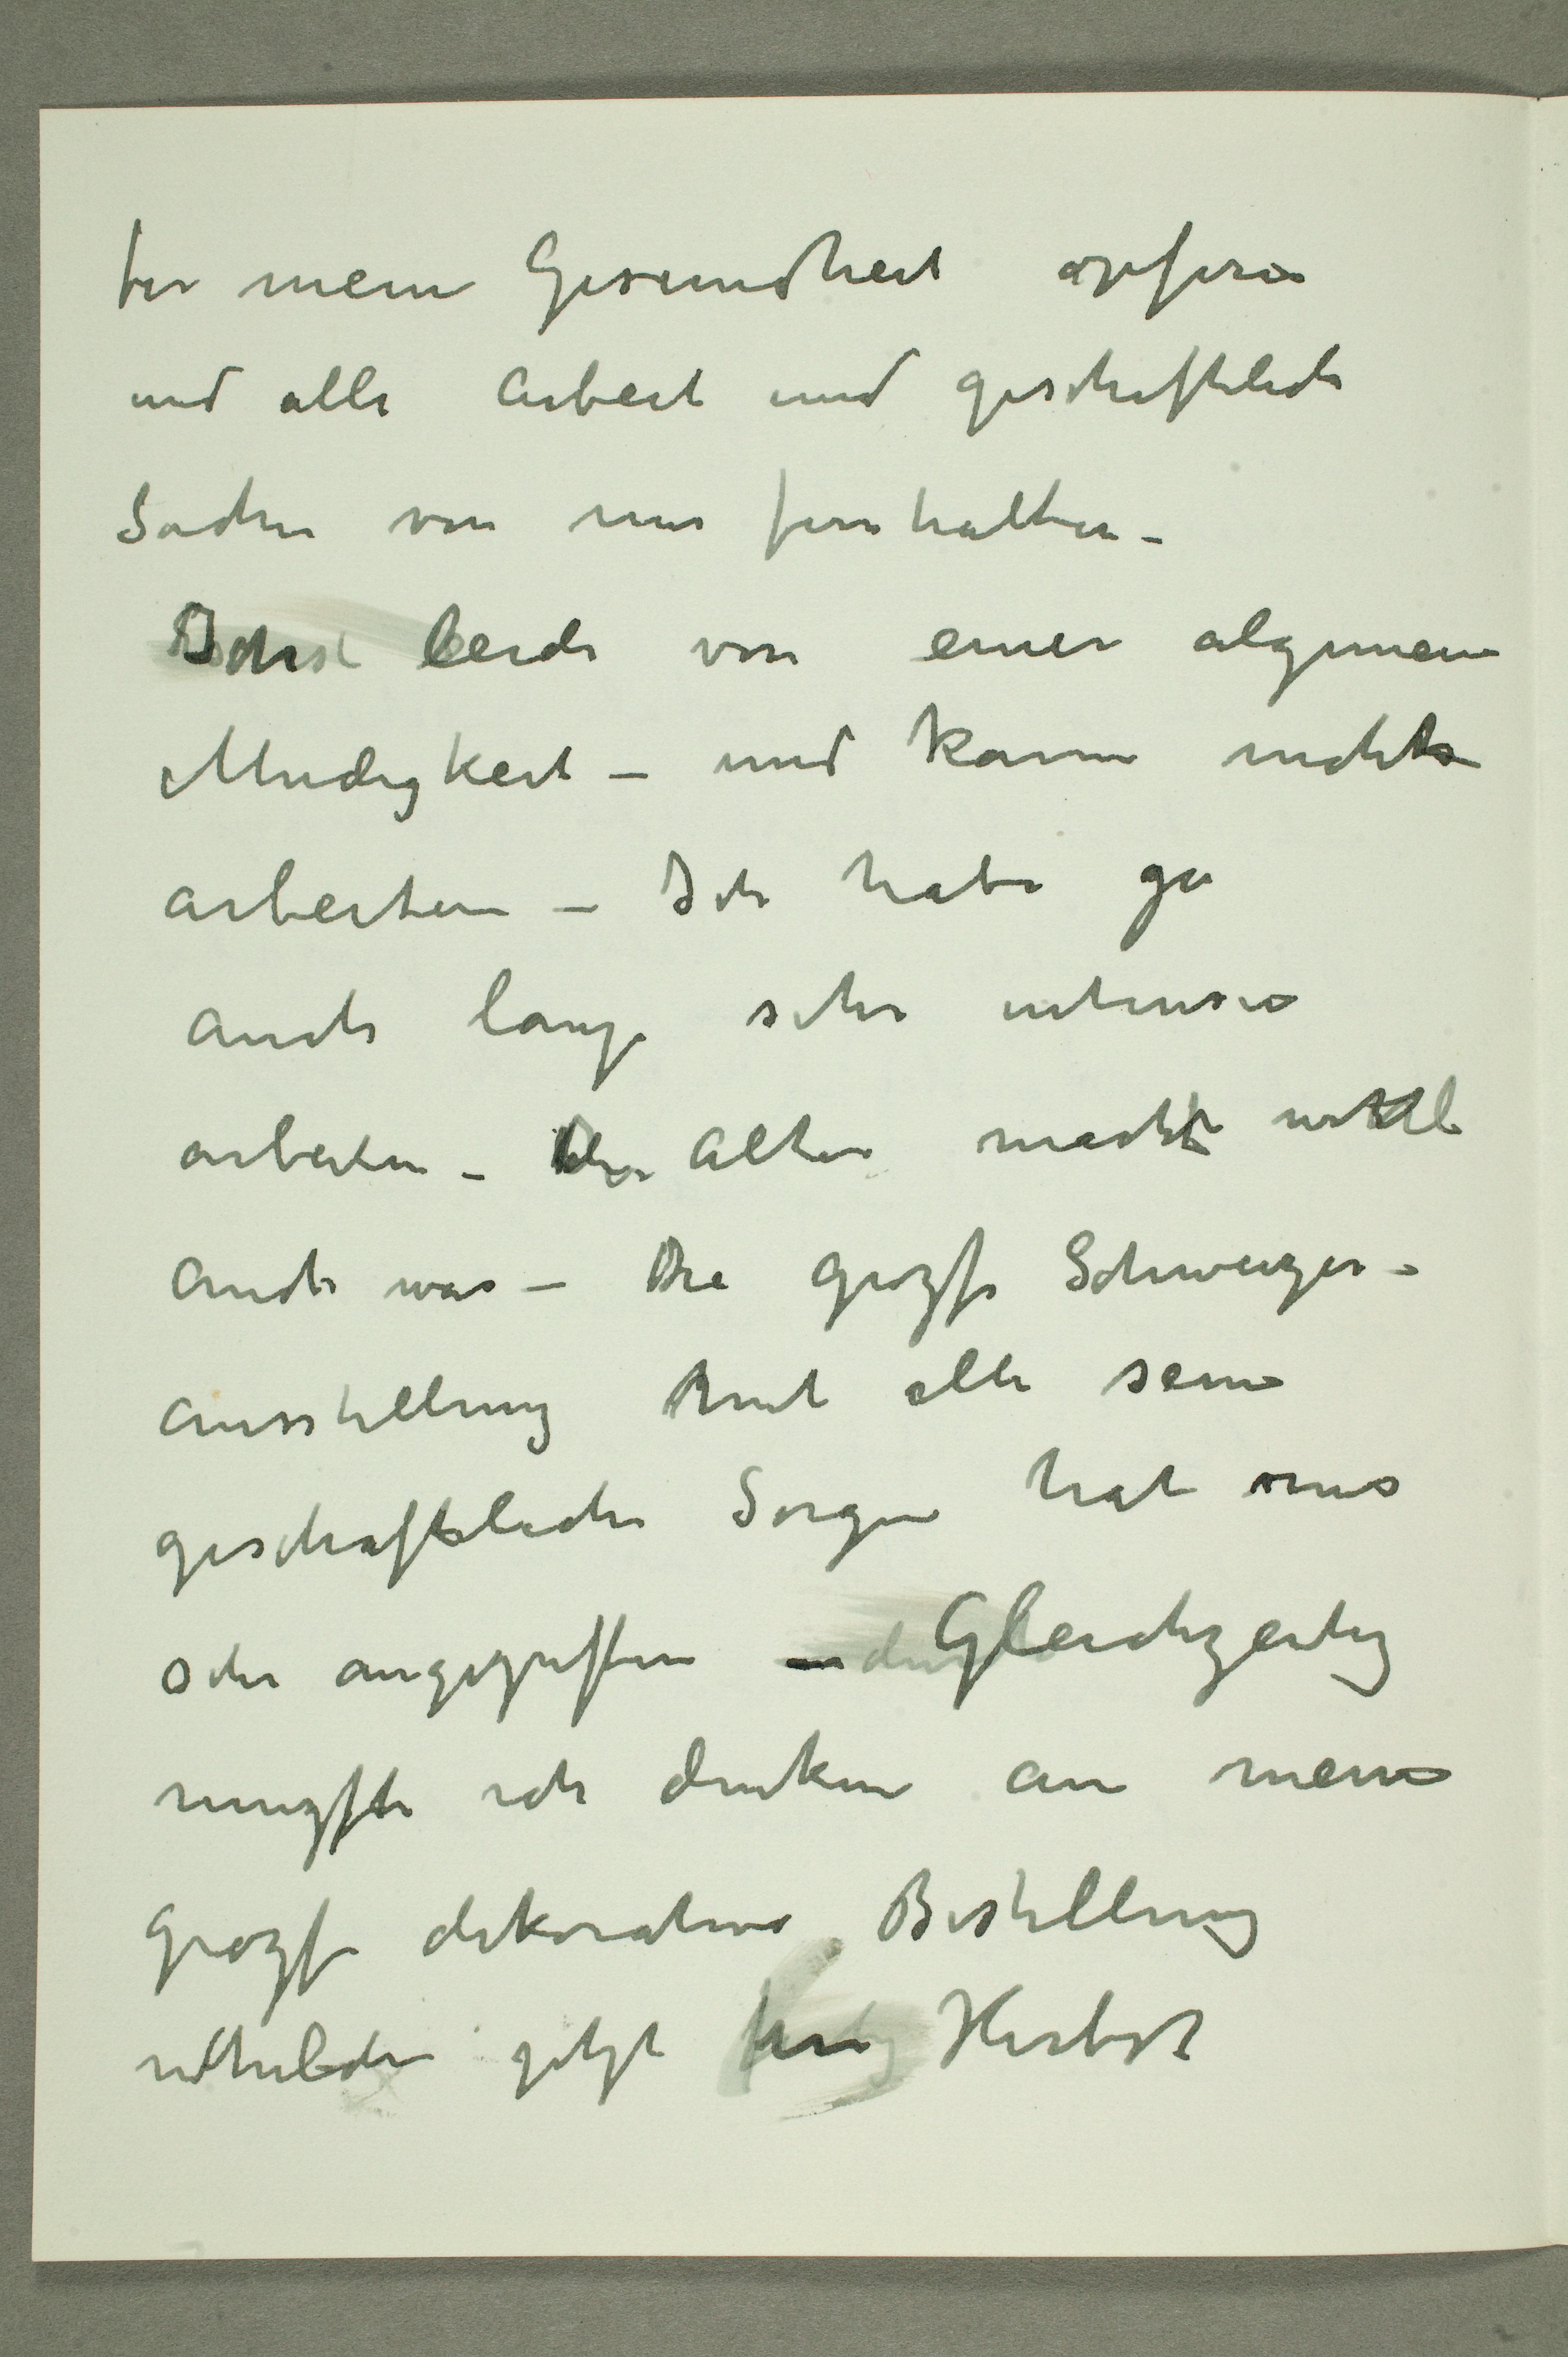 for meine Gesundheit opfern
und alle Arbeit und geschäftliche
Sachen von mir fernhalten –
Ich leide von einer algemeine
Mudigkeit – und kann nichts
arbeiten – Ich habe ja
auch lange sehr intensiv
arbeiten – Der Alter macht wohl
auch was – Die grozse Schweizer-
ausstellung mit alle seine
geschaftliche Sorgen hat mir
sehr angegriffen Gleichzeitig
muzste ich denken an meine
grozse dekorative Bestellung
welche jetzt Herbst